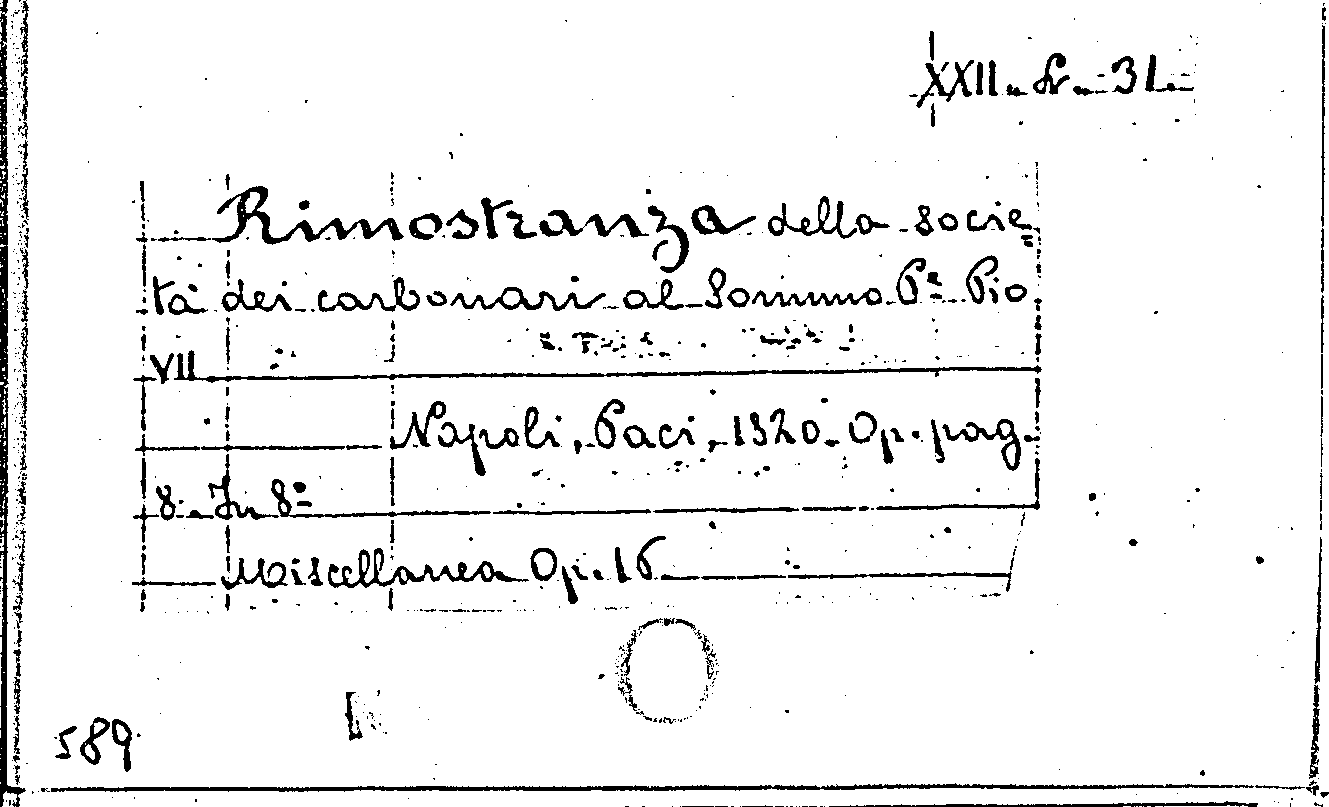 XXII. Sr. 31.
Rimostranza della socie=
tà dei carbonari al Sommo Pe Pio
VII
Napoli, Paci, 1820. Op. pag.
8. In 8º
Miscellanea Op. 16
589